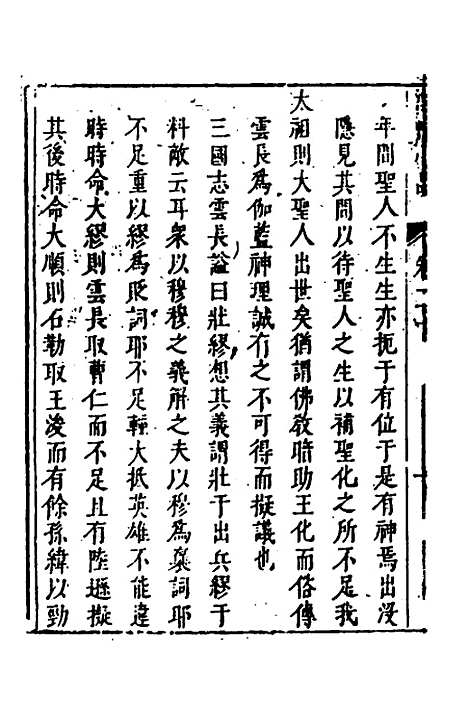 年間聖人不生生亦扼于有位于是有神焉出没
隱見其間以待聖人之生以補聖化之所不足我
太祖則大聖人出世矣猶謂佛教暗助王化而俗傳
雲長為伽藍神理誠有之不可得而擬議也
三國志雲長諡曰壯繆想其義謂壯于出兵繆于
料敵云耳衆以穆穆之義解之夫以穆為褒詞耶
不足重以繆為貶詞耶不足輕大抵英雄不能違
時時命大繆則雲長取曹仁而不足且有陸遜擬
其後時命大順則石勒取王浚而有餘孫緯以勁